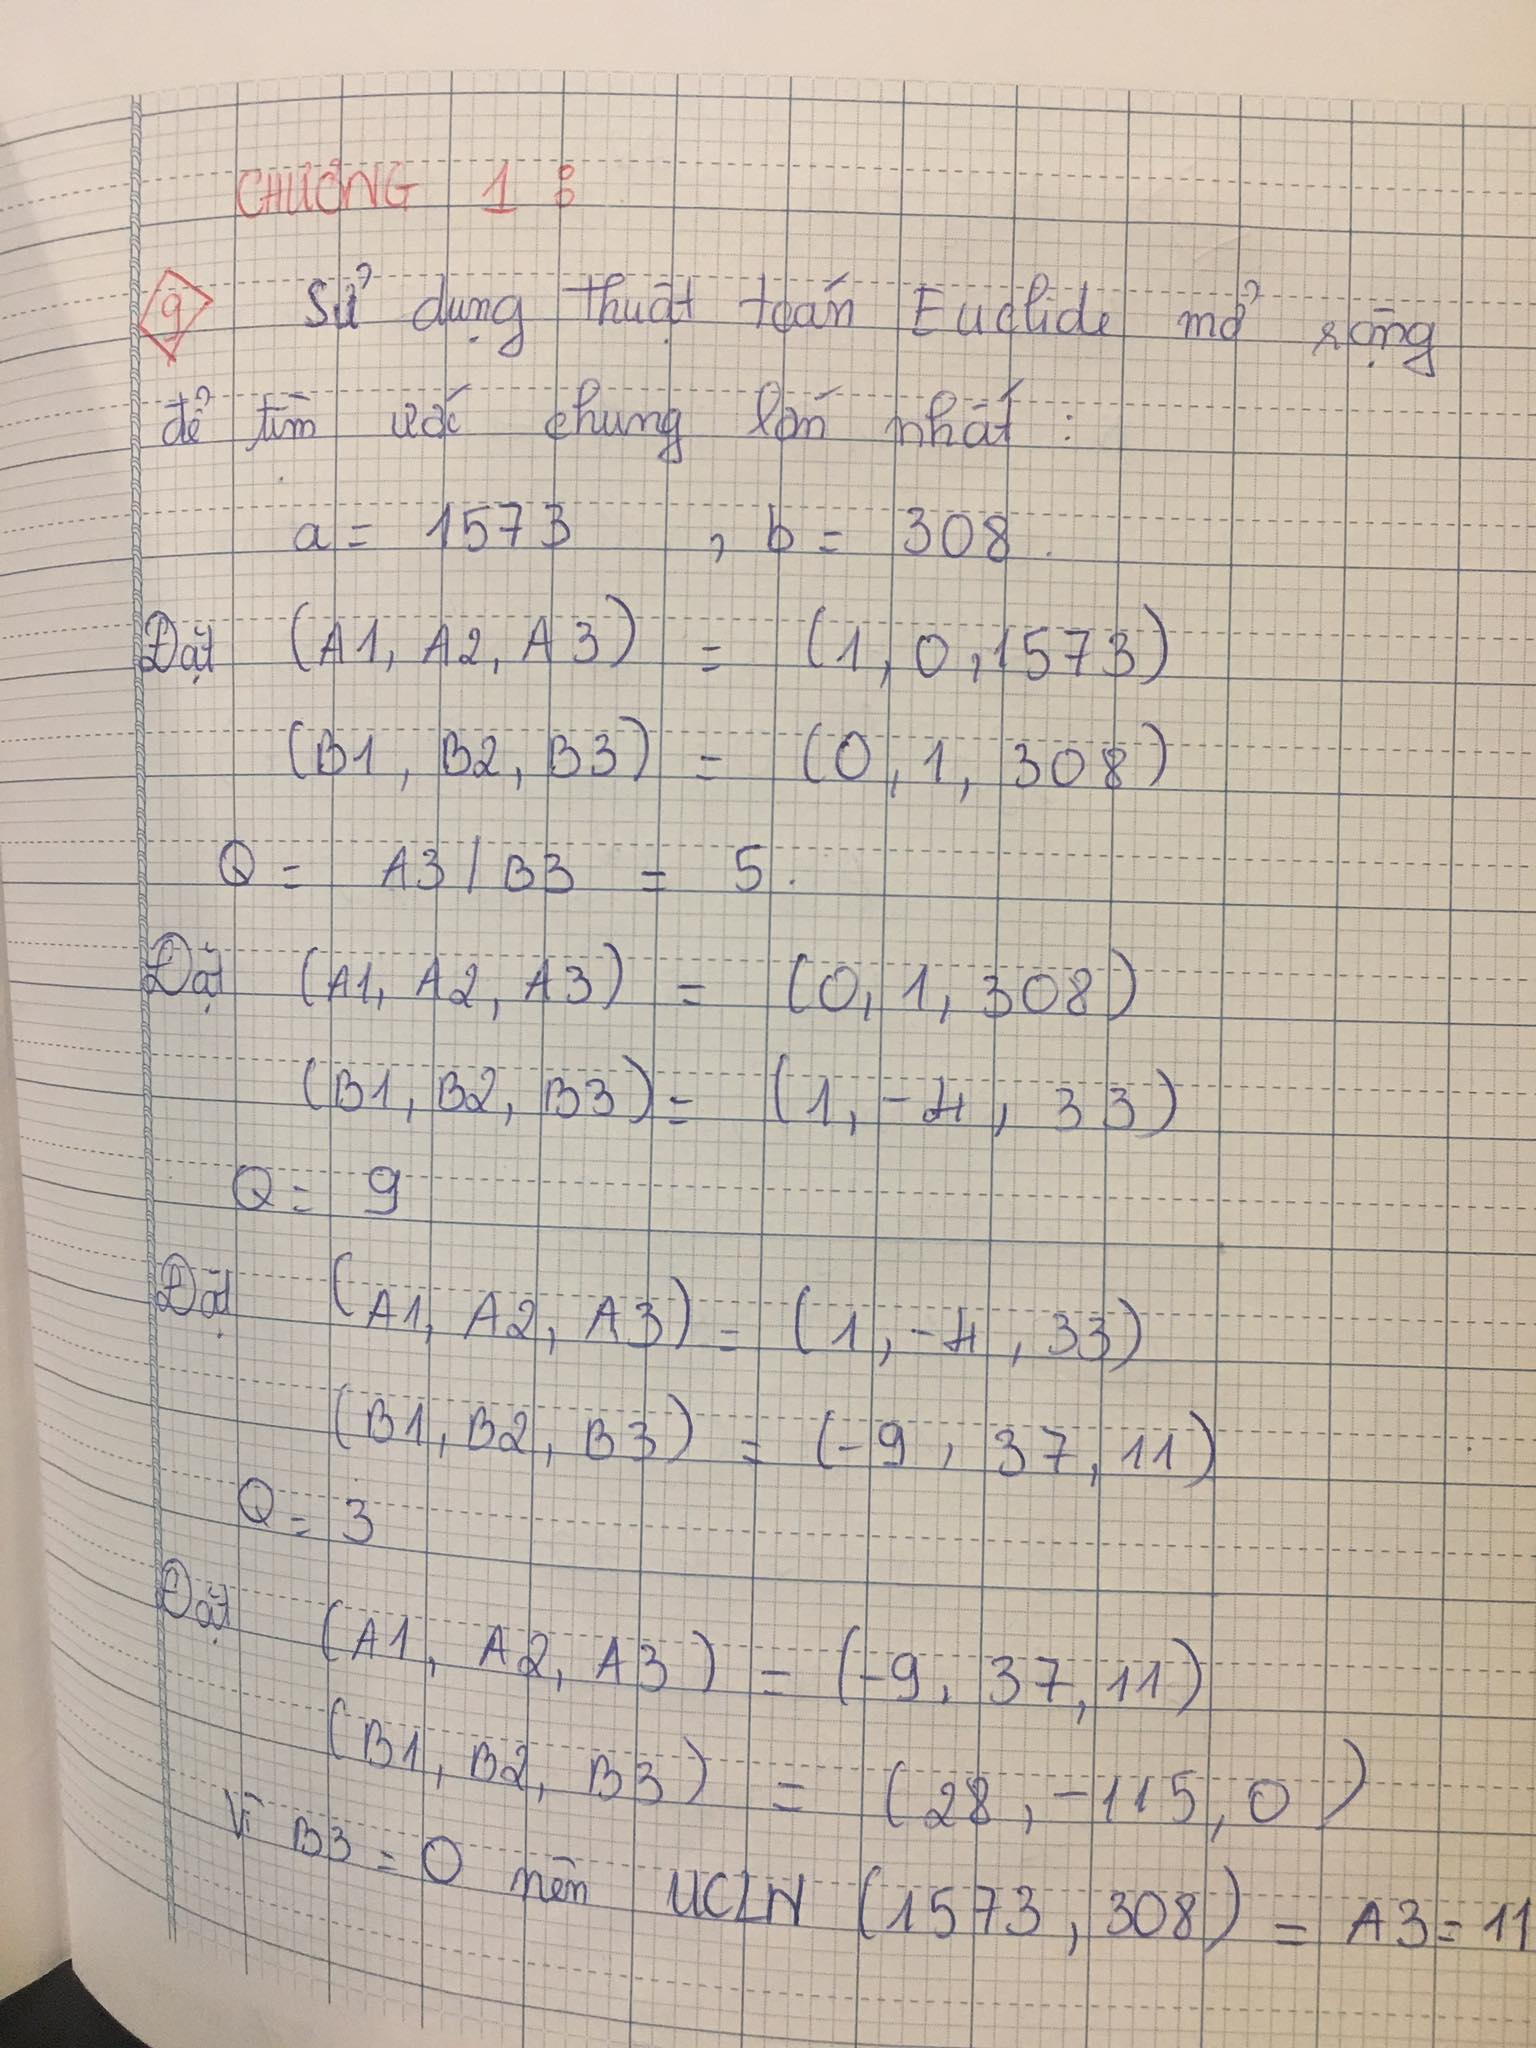 CHƯƠNG 1 :
9 Sử dụng thuật toán Euclide mở rộng
để tìm ước chung lớn nhất :
a = 1573 , b = 308 .
Đặt (A1, A2, A3) = (1, 0, 1573)
(B1, B2, B3) = (0, 1, 308)
Q = A3 / B3 = 5 .
Đặt (A1, A2, A3) = (0, 1, 308)
(B1, B2, B3) = (1, -4, 33)
Q = 9
Đặt (A1, A2, A3) = (1, -4, 33)
(B1, B2, B3) = (-9, 37, 11)
Q = 3
Đặt (A1, A2, A3) = (-9, 37, 11)
(B1, B2, B3) = (28, -115, 0)
Vì B3 = 0 nên UCLN (1573, 308) = A3 = 11